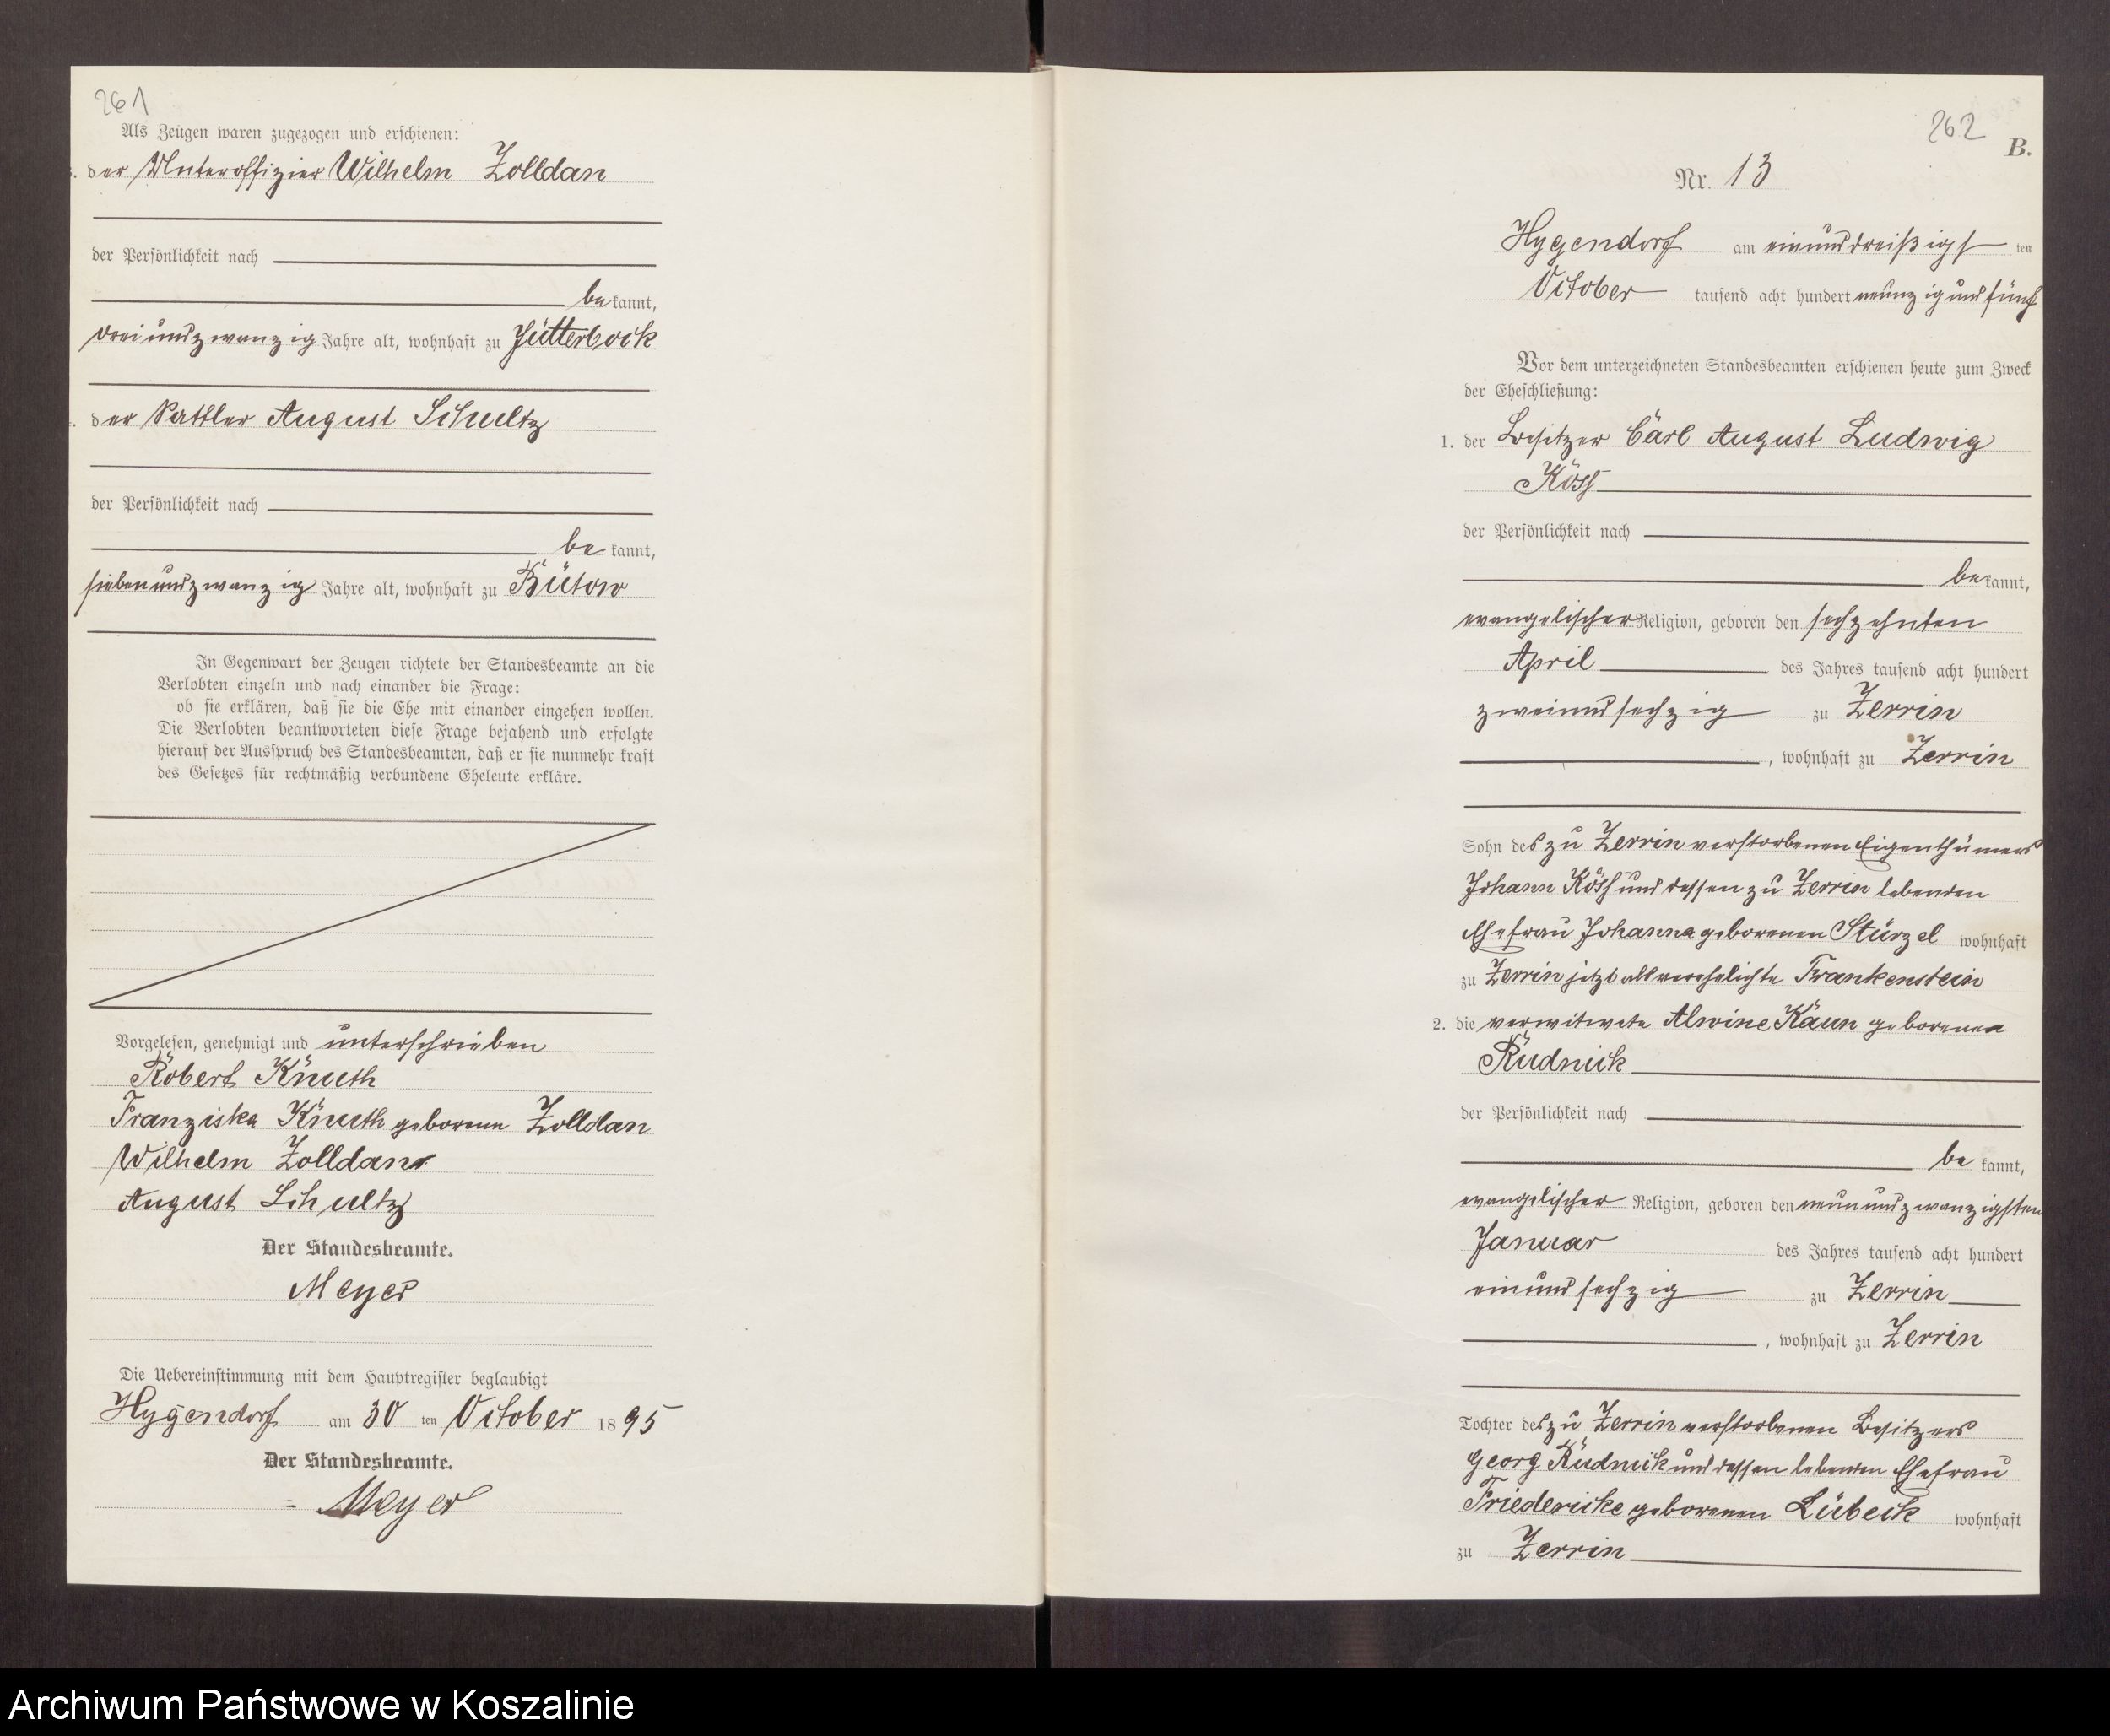 261
Als Zeugen waren zugezogen und erschienen:
der Unteroffizier Wilhelm Zolldan
der Persönlichkeit nach
bekannt,
dreiundzwanzig Jahre alt, wohnhaft zu Jütterbock
der Sattler August Schultz
der Persönlichkeit nach
be kannt,
siebenundzwanzig Jahre alt, wohnhaft zu Bütow
In Gegenwart der Zeugen richtete der Standesbeamte an die
Verlobten einzeln und nach einander die Frage:
ob sie erklären, daß sie die Ehe mit einander eingehen wollen.
Die Verlobten beantworteten diese Frage bejahend und erfolgte
hierauf der Ausspruch des Standesbeamten, daß er sie nunmehr kraft
des Gesetzes für rechtmäßig verbundene Eheleute erkläre.
Vorgelesen, genehmigt und unterschrieben
Robert Knuth
Franziska Knuth geborene Zolldan
Wilhelm Zolldan
August Schultz
Der Standesbeamte.
Meyer
Die Uebereinstimmung mit dem Hauptregister beglaubigt
Hygendorf am 30 ten October 1895
Der Standesbeamte.
Meyer
262
B.
Nr. 13
Hygendorf am einunddreißigst ten
October tausend acht hundert neunzig und fünf
Vor dem unterzeichneten Standesbeamten erschienen heute zum Zweck
der Eheschließung:
1. der Besitzer Carl August Ludwig
Köss
der Persönlichkeit nach
bekannt,
evangelischer Religion, geboren den sechzehnten
April des Jahres tausend acht hundert
zweiundsechzig zu Zerrin
, wohnhaft zu Zerrin
Sohn des zu Zerrin verstorbenen Eigenthümers
Johann Köss und dessen zu Zerrin lebenden
Ehefrau Johanna geborenen Stürzel wohnhaft
zu Zerrin jetzt als verehelichte Frankenstein
2. die verwitwete Alwine Kaun geborene
Rudnick
der Persönlichkeit nach
be kannt,
evangelischer Religion, geboren den neunundzwanzigsten
Januar des Jahres tausend acht hundert
einundsechzig zu Zerrin
, wohnhaft zu Zerrin
Tochter des zu Zerrin verstorbenen Besitzers
Georg Rudnick und dessen lebenden Ehefrau
Friedericke geborenen Lübeck wohnhaft
zu Zerrin
Archiwum Państwowe w Koszalinie